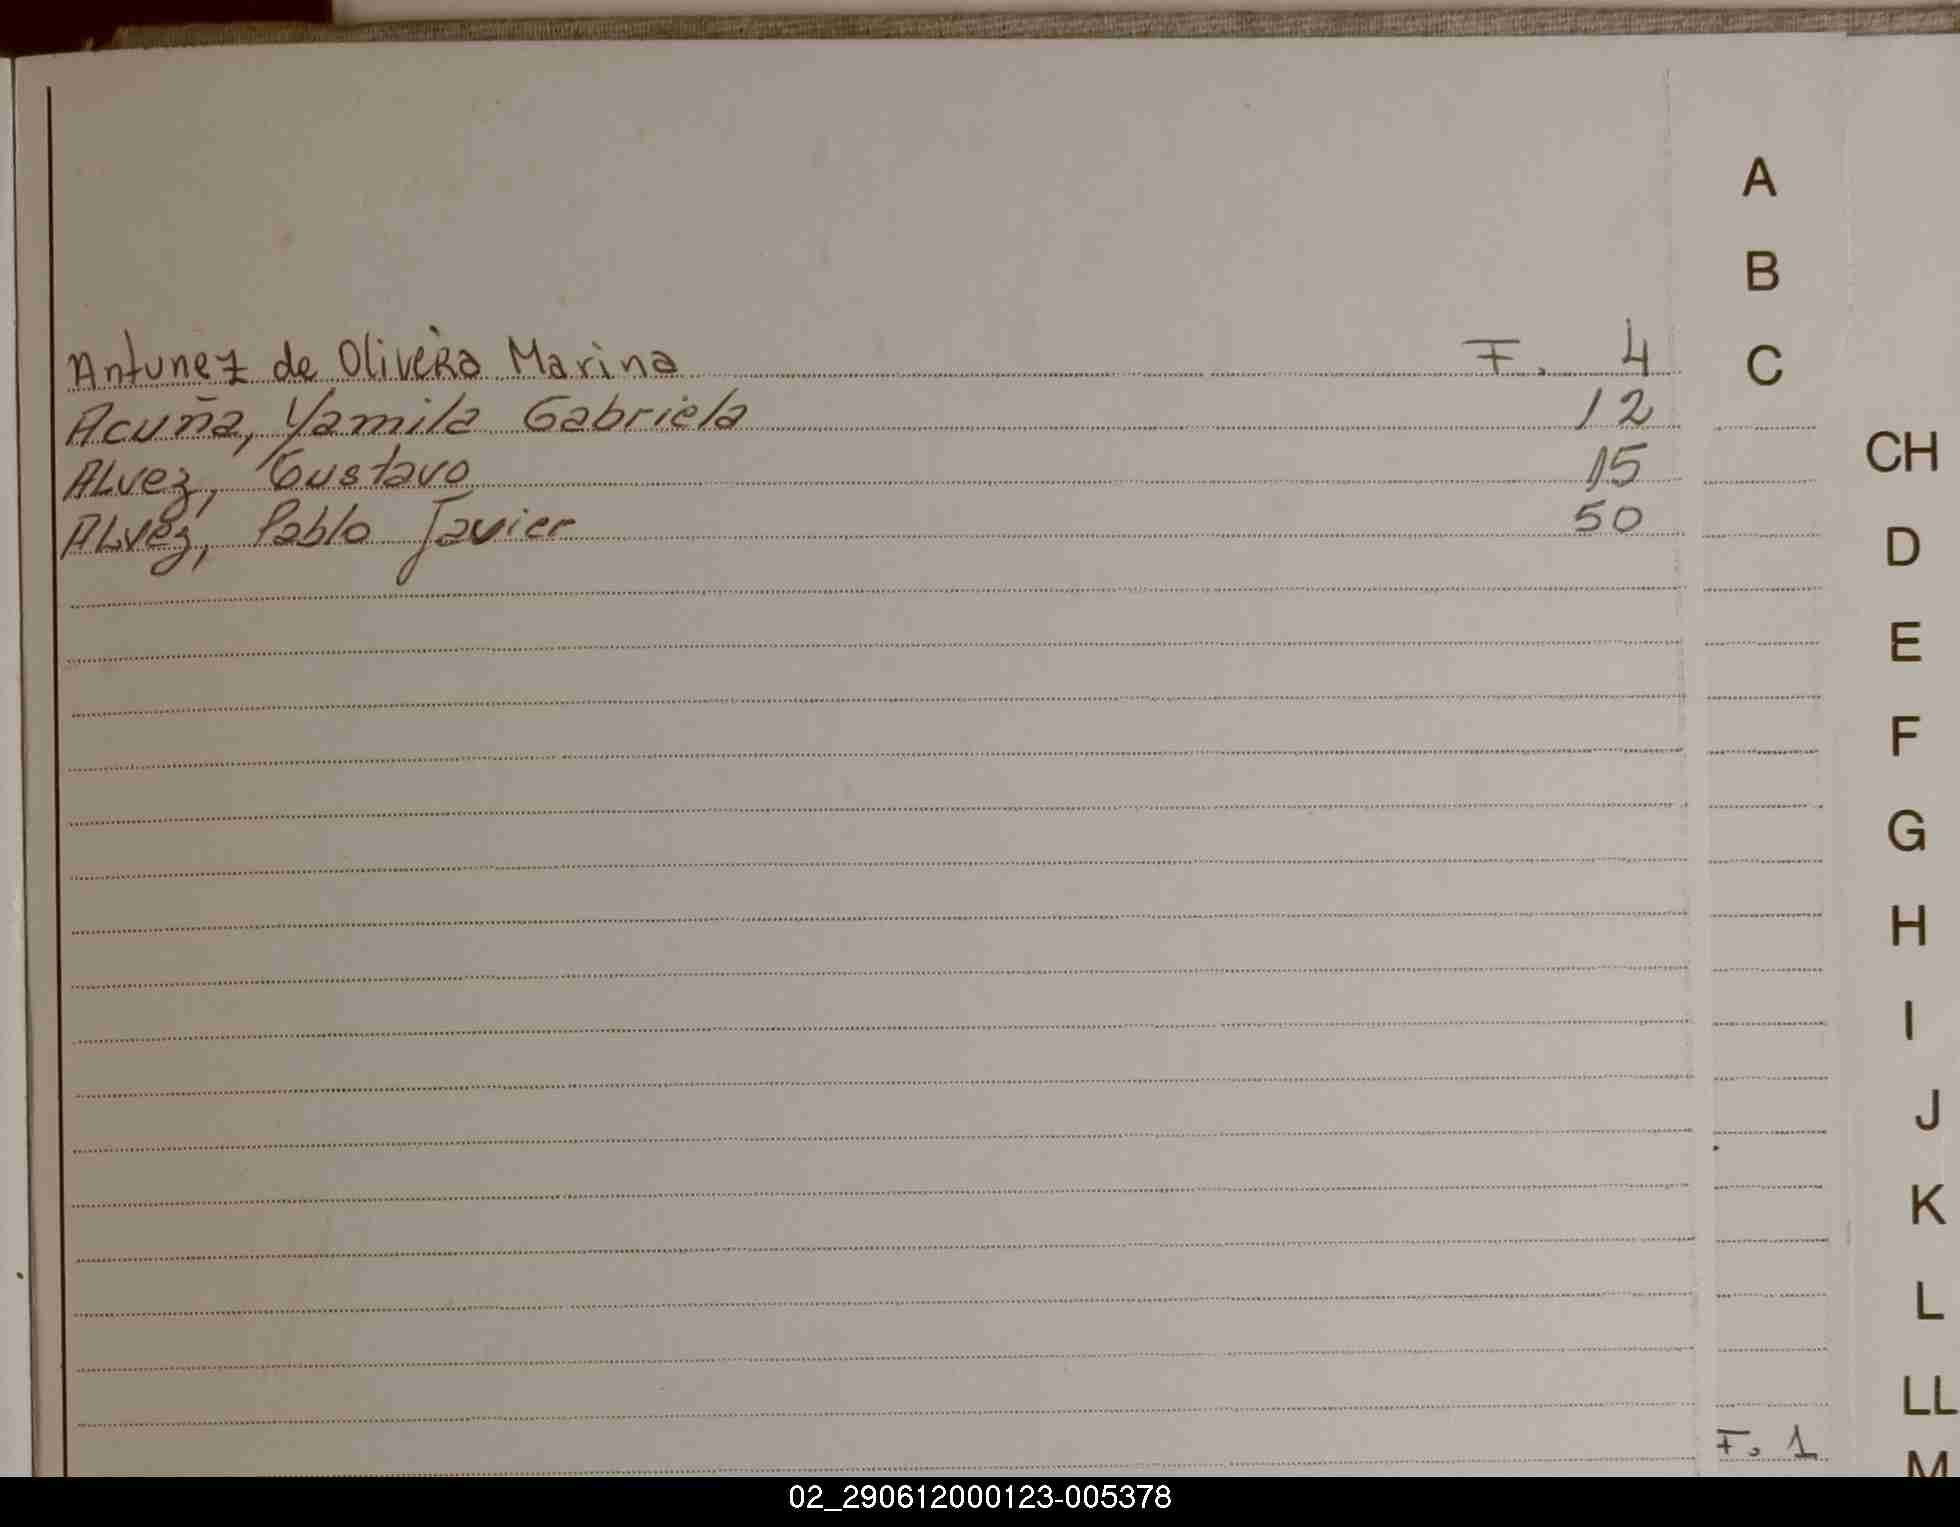 A
B
Antunez de Olivera Marina F. 4
C
Acuña, Yamila Gabriela 12
CH
Alvez, Gustavo 15
Alvez, Pablo Javier 50
D
E
F
G
H
I
J
K
L
LL
F. 1
M
02_290612000123-005378